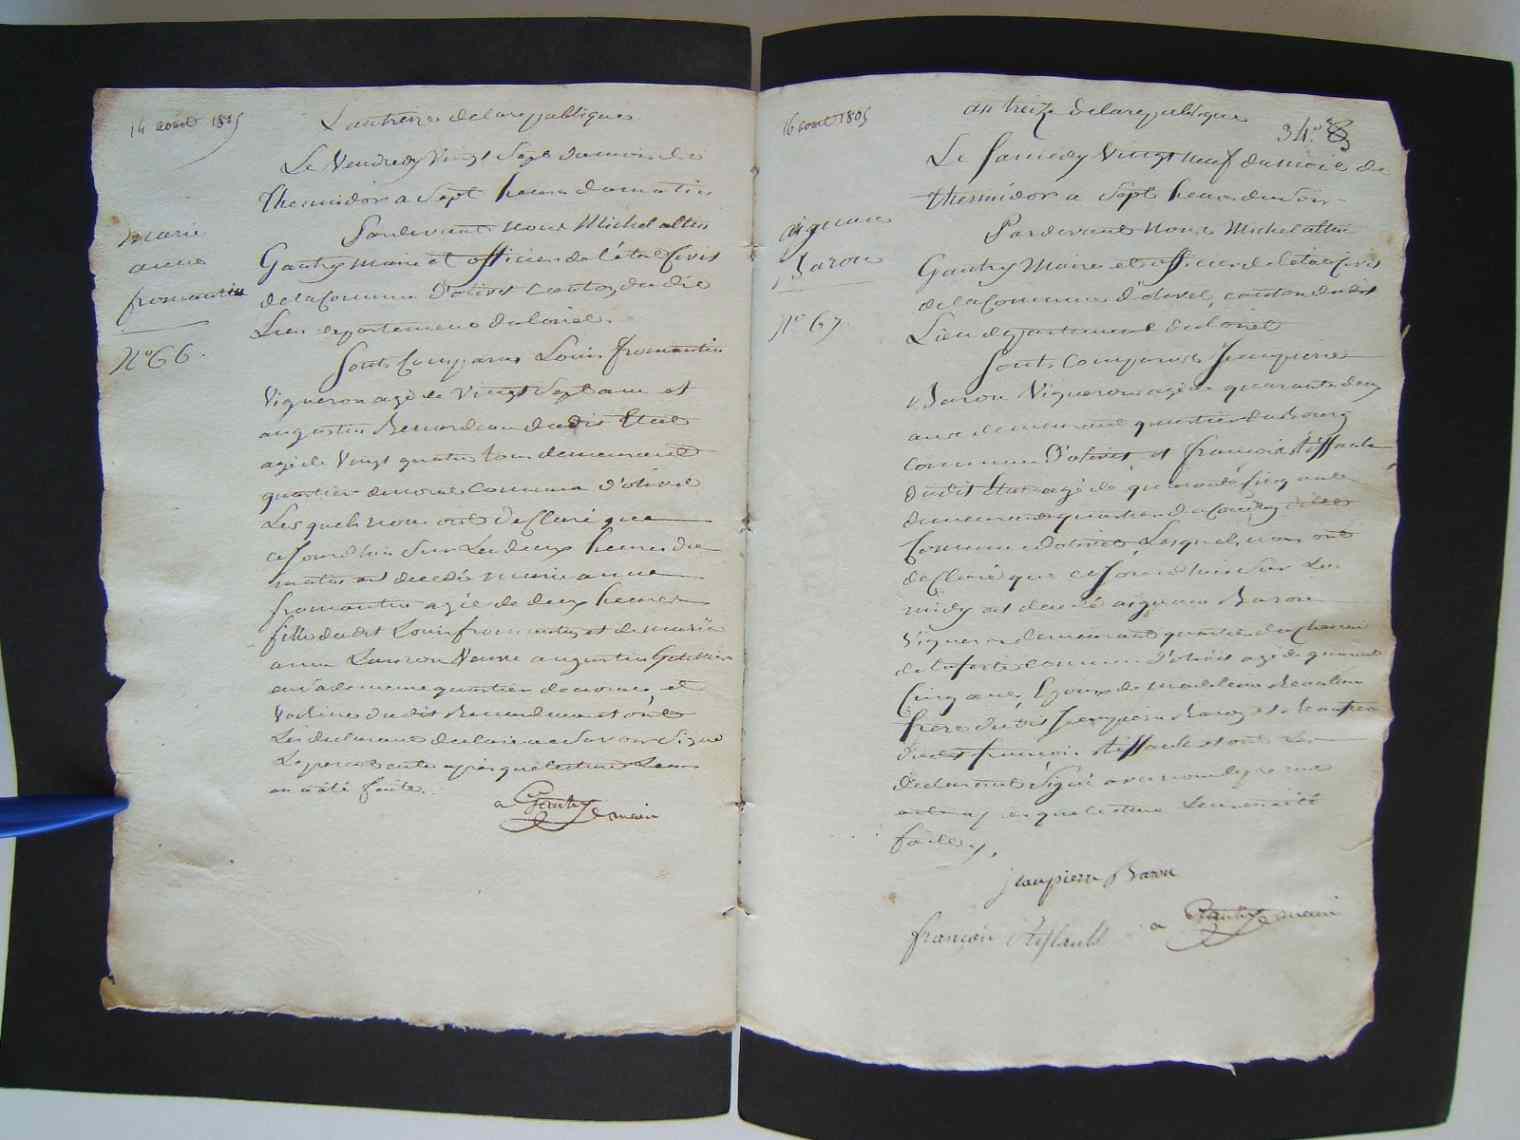 14 aout 1805
L'an treize de la republique
Le Vendredy Vingt Sept du mois de
thermidor a Sept heure du matin
Pardevant nous Michel altin
Gautry Maire et officier de l'état Civil
de la Commune d'olivet Canton du dit
Lieu departement du Loiret.
marie
anne
fromentin
N° 66.
Sont Comparus Louis fromentin
Vigneron agé de Vingt Sept ans et
augustin Renardeau dudit Etat
agé de Vingt quatre tous demeurant
quartier Commune d'olivet
Lesquels nous ont declaré que
ce Jourd'hui Sur Les deux heures du
matin est decedé marie anne
fromentin agée de deux heures
fille dudit Louis fromentin et de marie
anne Veuve augustin
meme quartier et
Voisine dudit et ont
Les declarant declaré ne Savoir Signé
Le present acte apres que lecture Leur
en a été faite.
a Gautry maire
16 aout 1805
an treize de la republique
34.e
Le Samedy Vingt neuf du mois de
thermidor a Sept heure du Soir
Pardevant Nous Michel altin
Gautry Maire et officier de l'état Civil
de la Commune d'olivet, canton dudit
Lieu departement du Loiret
aignan
Baron
N° 67.
Sont Comparus Jean pierre
Baron Vigneron agé de quarante deux
ans demeurant quartier du Bourg
commune d'olivet et françois Aiffault
dudit Etat agé de quarante Cinq ans
demeurant quartier du dite
Commune d'olivet Lesquels nous ont
declaré que ce Jourd'hui Sur Les
midy est decedé aignan Baron
Vigneron demeurant quartier du
de la ferté commune d'olivet agé de quarante
Cinq ans, Epoux de madeleine
frere dudit Jean pierre Baron et
dudit françois Aiffault et ont Les
declarant Signé avec nous le present
acte apres que lecture Leur en a été
faitte,
jean pierre Baron
françois Aiffault
a Gautry maire